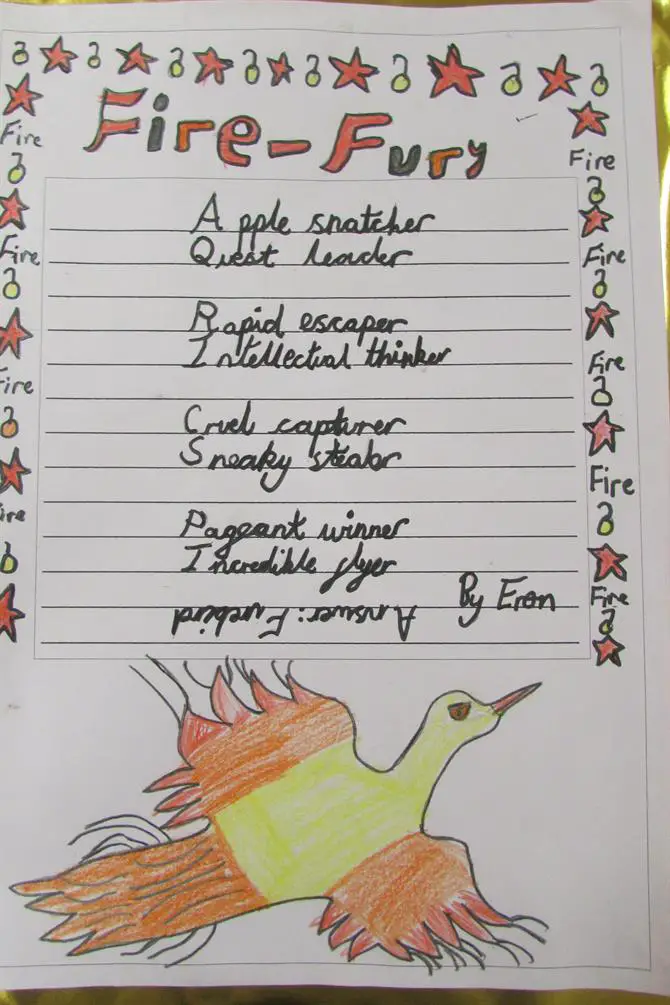 Fire-Fury
Apple snatcher
Quest leader
Rapid escaper
Intellectual thinker
Cruel capturer
Sneaky stealer
Pageant winner
Incredible flyer
By Eron
Answer: Firebird
Fire
Fire
Fire
Fire
Fire
Fire
Fire
Fire
Fire